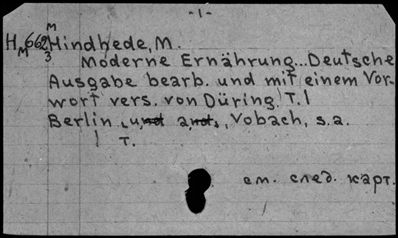 -1-
H M 662 M/3 Hindhede, M.
Moderne Ernährung... Deutsche
Ausgabe bearb. und mit einem Vor-
wort vers. von Düring. T. 1
Berlin, und and., Vobach, s.a.
1 T.
см. след. карт.